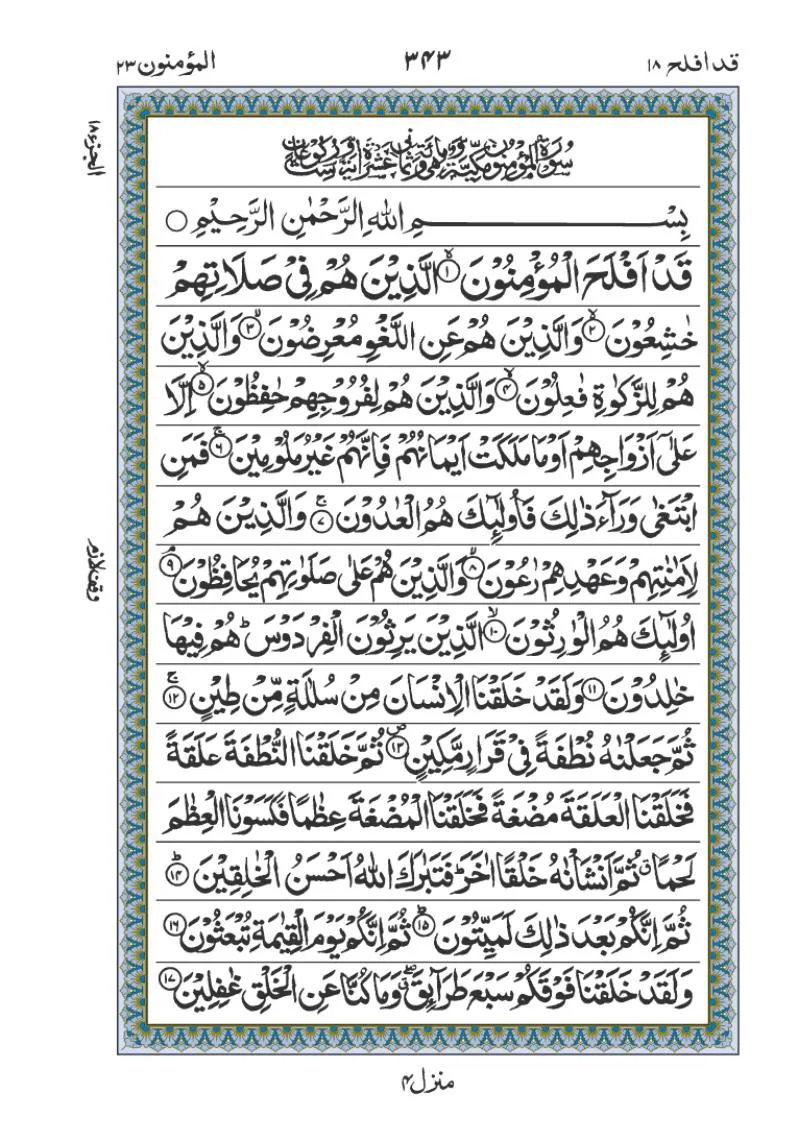 قد افلح ۱۸
۳۴۳
المؤمنون ۲۳
الجزء ۱۸
سُوْرَةُ الْمُؤْمِنُوْنَ مَكِّيَّةٌ وَّهِيَ مِائَةٌ وَّثَمَانِيَ عَشَرَةَ اٰيَةً وَّسِتُّ رُكُوْعَاتٍ
بِسْــــــــمِ اللهِ الرَّحْمٰنِ الرَّحِيْمِ ○
قَدْ اَفْلَحَ الْمُؤْمِنُوْنَ ۙ﴿۱﴾ الَّذِيْنَ هُمْ فِيْ صَلَاتِهِمْ
خٰشِعُوْنَ ۙ﴿۲﴾ وَالَّذِيْنَ هُمْ عَنِ اللَّغْوِ مُعْرِضُوْنَ ۙ﴿۳﴾ وَالَّذِيْنَ
هُمْ لِلزَّكٰوةِ فٰعِلُوْنَ ۙ﴿۴﴾ وَالَّذِيْنَ هُمْ لِفُرُوْجِهِمْ حٰفِظُوْنَ ۙ﴿۵﴾ اِلَّا
عَلٰۤى اَزْوَاجِهِمْ اَوْ مَا مَلَكَتْ اَيْمَانُهُمْ فَاِنَّهُمْ غَيْرُ مَلُوْمِيْنَ ۚ﴿۶﴾ فَمَنِ
ابْتَغٰى وَرَآءَ ذٰلِكَ فَاُولٰٓئِكَ هُمُ الْعٰدُوْنَ ۚ﴿۷﴾ وَالَّذِيْنَ هُمْ
لِاَمٰنٰتِهِمْ وَعَهْدِهِمْ رٰعُوْنَ ۙ﴿۸﴾ وَالَّذِيْنَ هُمْ عَلٰى صَلَوٰتِهِمْ يُحَافِظُوْنَ ۘ﴿۹﴾
وقف لازم
اُولٰٓئِكَ هُمُ الْوٰرِثُوْنَ ۙ﴿۱۰﴾ الَّذِيْنَ يَرِثُوْنَ الْفِرْدَوْسَ ؕ هُمْ فِيْهَا
خٰلِدُوْنَ ﴿۱۱﴾ وَلَقَدْ خَلَقْنَا الْاِنْسَانَ مِنْ سُلٰلَةٍ مِّنْ طِيْنٍ ۚ﴿۱۲﴾
ثُمَّ جَعَلْنٰهُ نُطْفَةً فِيْ قَرَارٍ مَّكِيْنٍ ۪﴿۱۳﴾ ثُمَّ خَلَقْنَا النُّطْفَةَ عَلَقَةً
فَخَلَقْنَا الْعَلَقَةَ مُضْغَةً فَخَلَقْنَا الْمُضْغَةَ عِظٰمًا فَكَسَوْنَا الْعِظٰمَ
لَحْمًا ٭ ثُمَّ اَنْشَاْنٰهُ خَلْقًا اٰخَرَ ؕ فَتَبٰرَكَ اللهُ اَحْسَنُ الْخٰلِقِيْنَ ؕ﴿۱۴﴾
ثُمَّ اِنَّكُمْ بَعْدَ ذٰلِكَ لَمَيِّتُوْنَ ؕ﴿۱۵﴾ ثُمَّ اِنَّكُمْ يَوْمَ الْقِيٰمَةِ تُبْعَثُوْنَ ﴿۱۶﴾
وَلَقَدْ خَلَقْنَا فَوْقَكُمْ سَبْعَ طَرَآئِقَ ۖ وَمَا كُنَّا عَنِ الْخَلْقِ غٰفِلِيْنَ ﴿۱۷﴾
منزل ۴